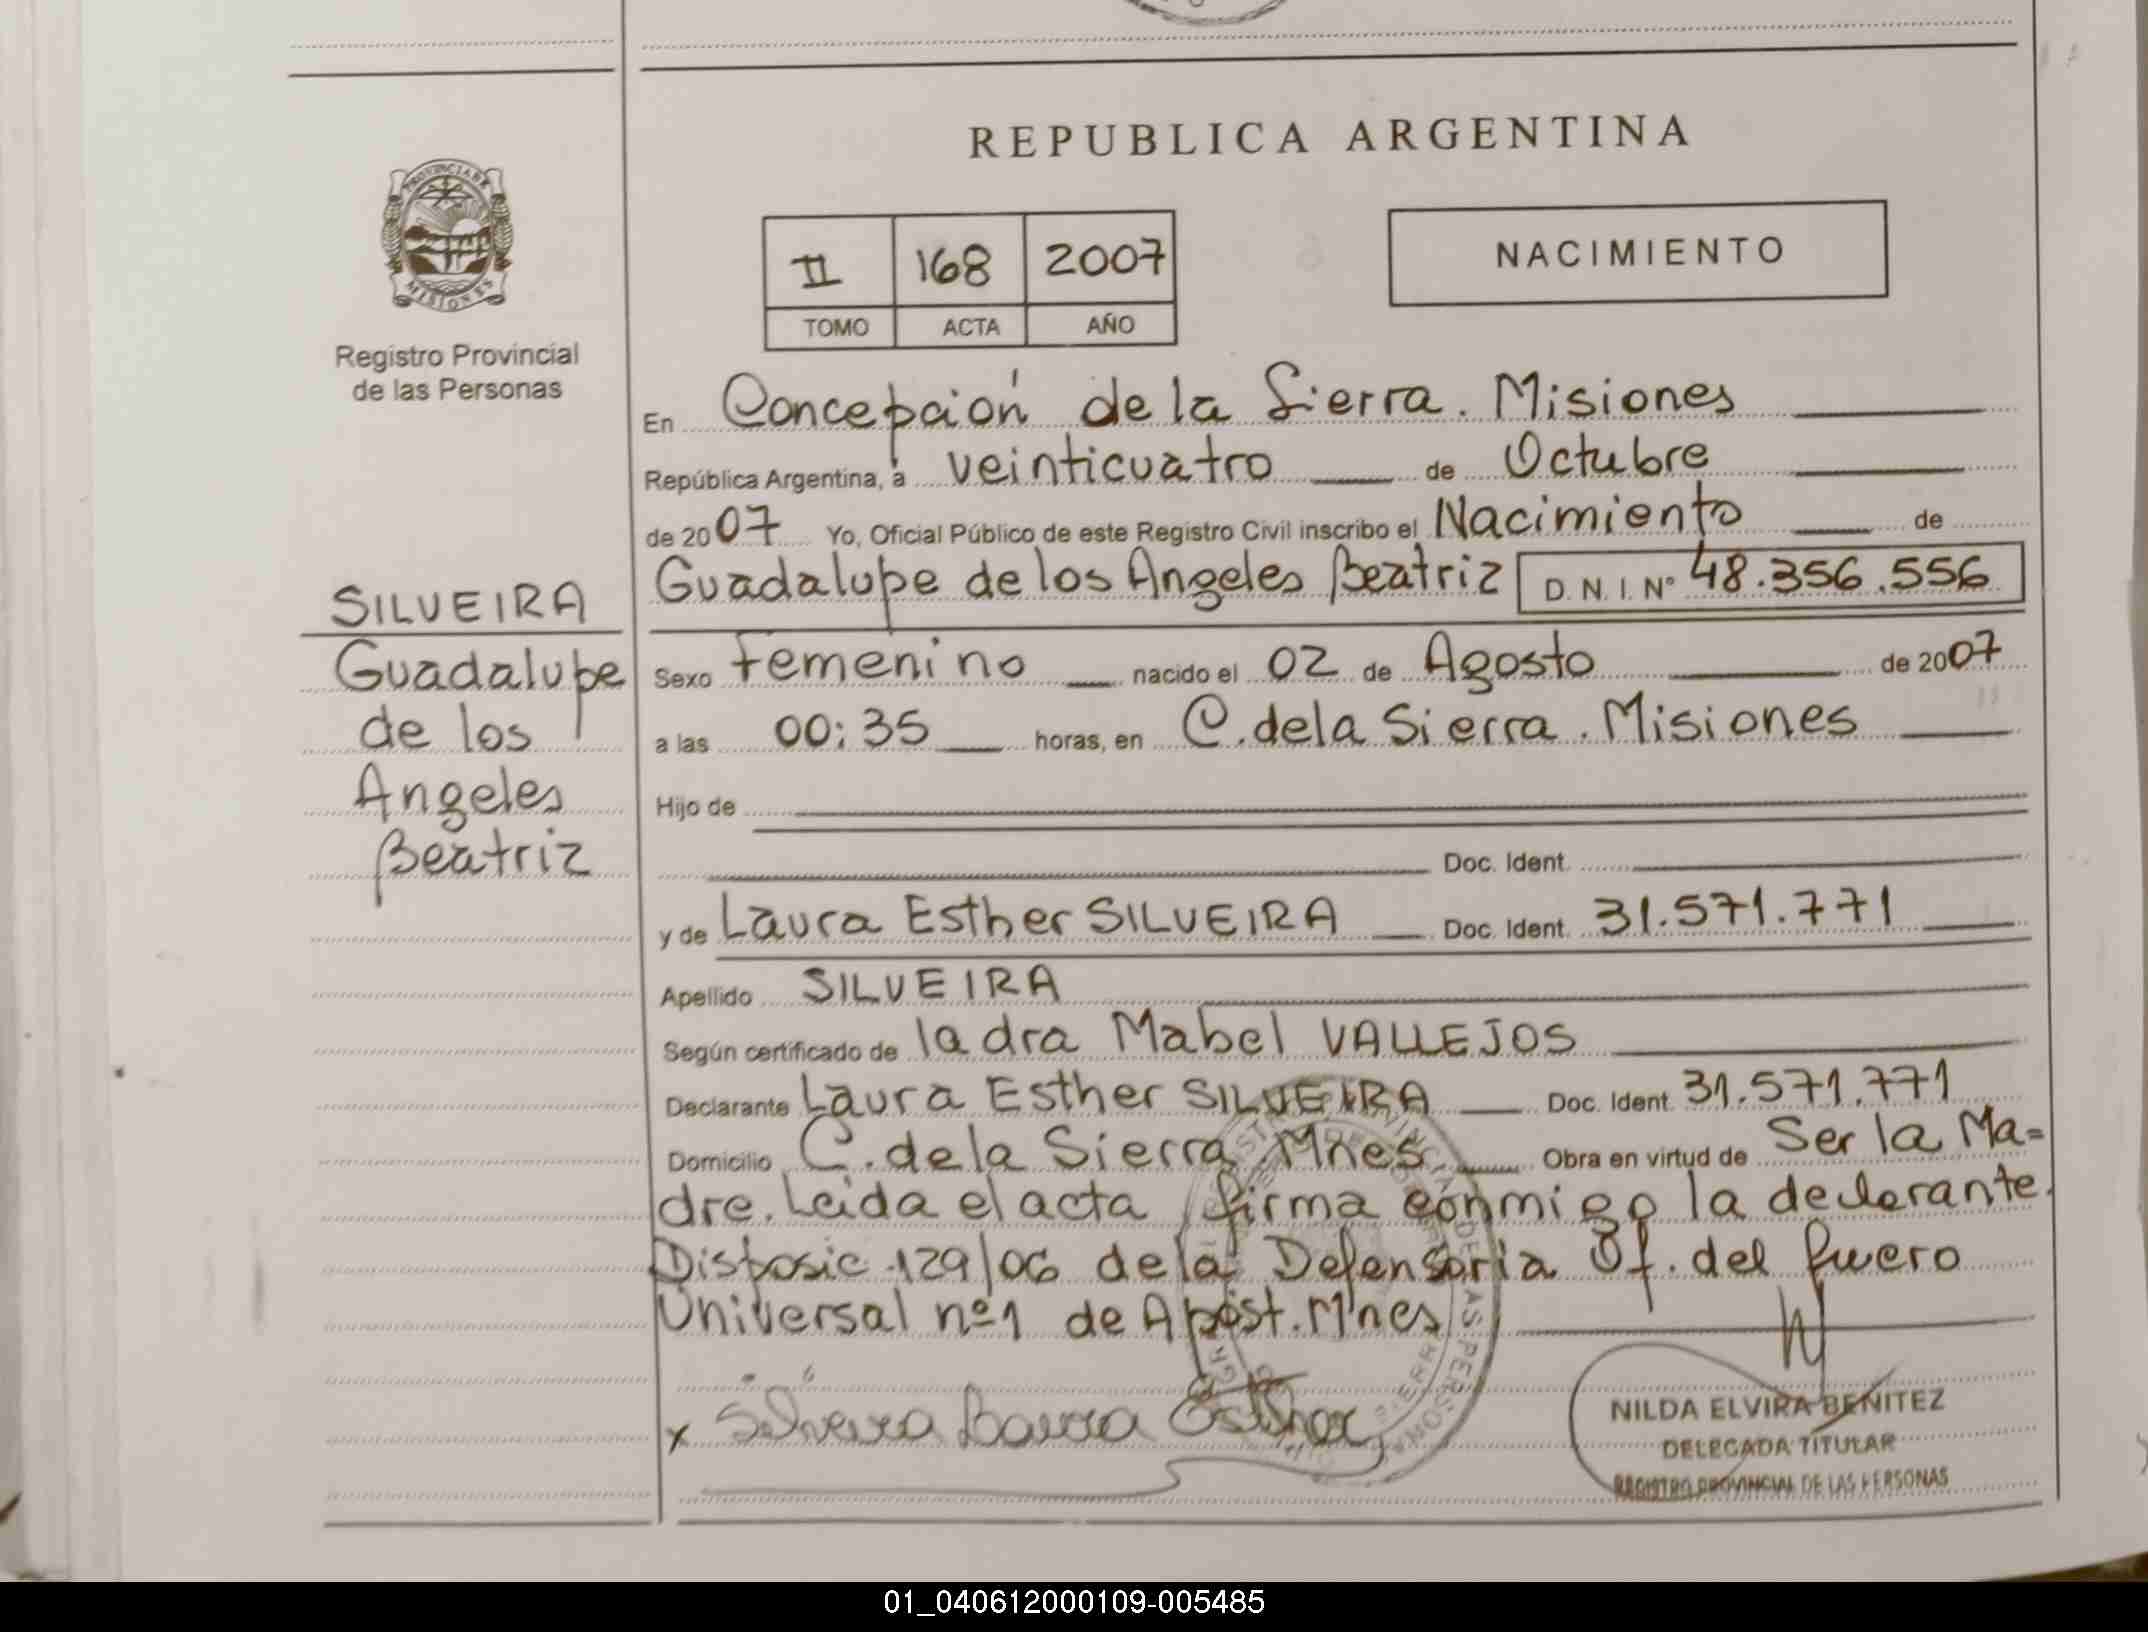 REPUBLICA ARGENTINA
PROVINCIA DE
MISIONES
Registro Provincial
de las Personas
II 168 2007
TOMO ACTA AÑO
NACIMIENTO
En Concepción de la Sierra. Misiones
República Argentina, a veinticuatro de Octubre
de 2007 Yo, Oficial Público de este Registro Civil inscribo el Nacimiento de
Guadalupe de los Angeles Beatriz D. N. I. Nº 48.356.556
SILVEIRA
Guadalupe
de los
Angeles
Beatriz
Sexo Femenino nacido el 02 de Agosto de 2007
a las 00:35 horas, en C. de la Sierra. Misiones
Hijo de
Doc. Ident.
y de Laura Esther SILVEIRA Doc. Ident. 31.571.771
Apellido SILVEIRA
Según certificado de la dra Mabel VALLEJOS
Declarante Laura Esther SILVEIRA Doc. Ident. 31.571.771
Domicilio C. de la Sierra Mnes. Obra en virtud de Ser la Ma=
dre. Leida el acta firma conmigo la declarante.
Disposic. 129/06 de la Defensoria Of. del fuero
Universal nº 1 de Apóst. Mnes
x Silveira Laura Esther
NILDA ELVIRA BENITEZ
DELEGADA TITULAR
REGISTRO PROVINCIAL DE LAS PERSONAS
01_040612000109-005485